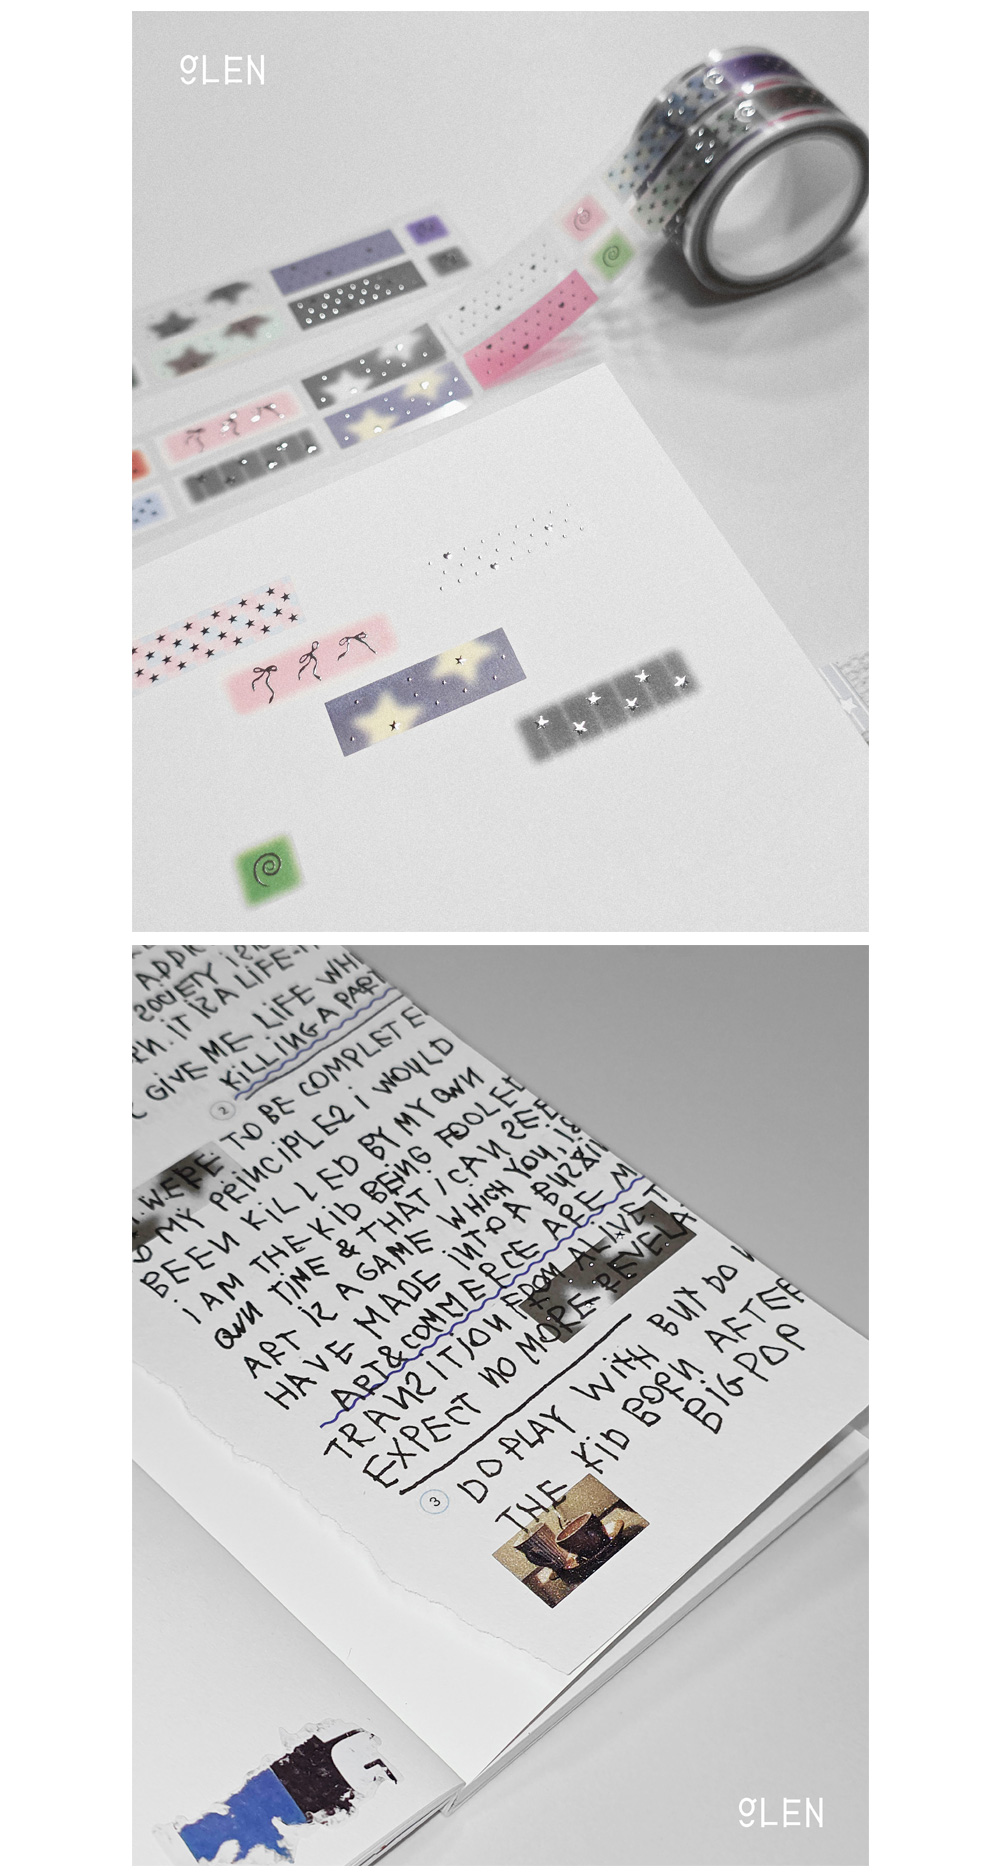 gLEN
ADDI
SOCIETY IS
RN. IT IS A LIFE-
GIVE ME LIFE WH
KILLING A PART
2
TO BE COMPLETE
WERE
MY PRINCIPLES i WOULD
BEEN KILLED BY MY OWN
i AM THE KID BEING FOOLED
OWN TIME & THAT I CAN SEE
ART IS A GAME WHICH YOU
HAVE MADE INTO A BUSSIN
ART & COMMERCE ARE M
TRANSITION FROM A LIVE T
EXPECT NO MORE REVELA
3
DO PLAY WITH BUY DO
THE KID BORN AFTER
BIGPOP
gLEN